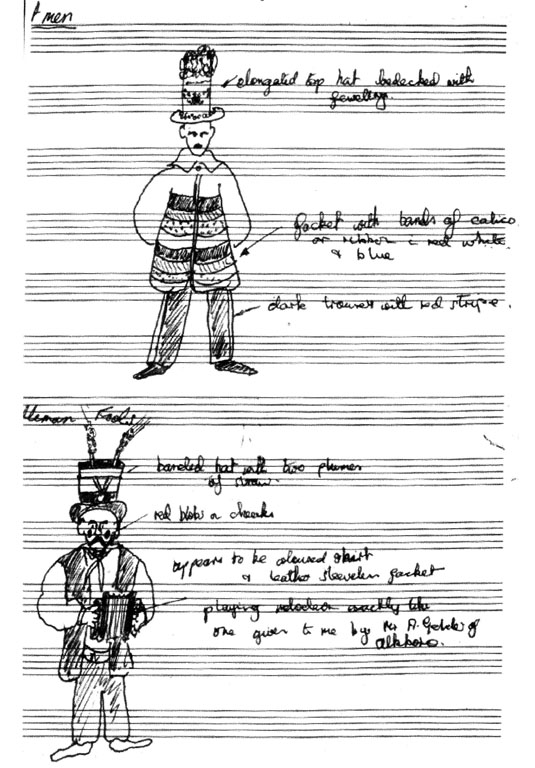 men
elongated top hat bedecked with
jewellry.
Jacket with bands of calico
or ribbon in red white
& blue
dark trousers with red stripe.
Human Fools
banded hat with two plumes
of straw.
red blobs on cheeks
appears to be coloured shirt
& leather sleeveless jacket
playing melodeon exactly like
one given to me by Mr A. of
Alkboro.